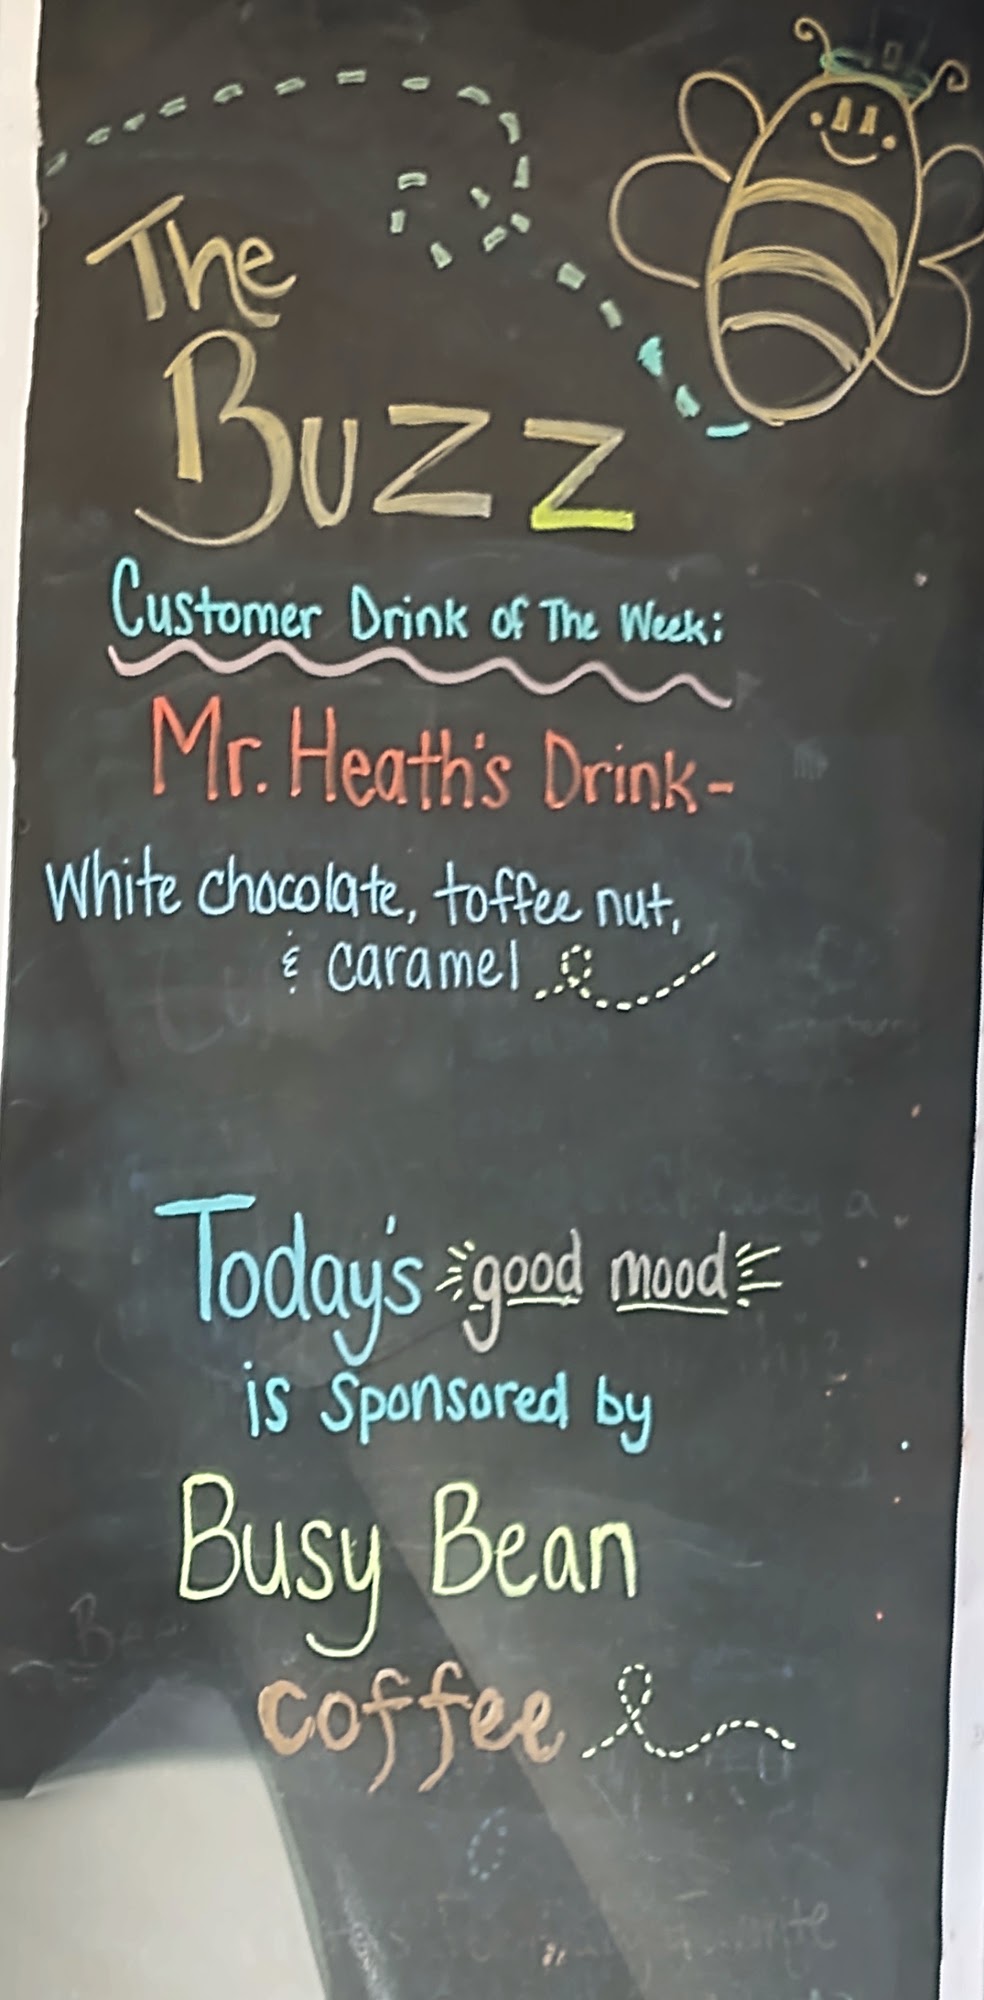 The
BUZZ
Customer Drink of The Week:
Mr. Heath's Drink-
White chocolate, toffee nut,
& caramel
Today's good mood
is sponsored by
Busy Bean
coffee